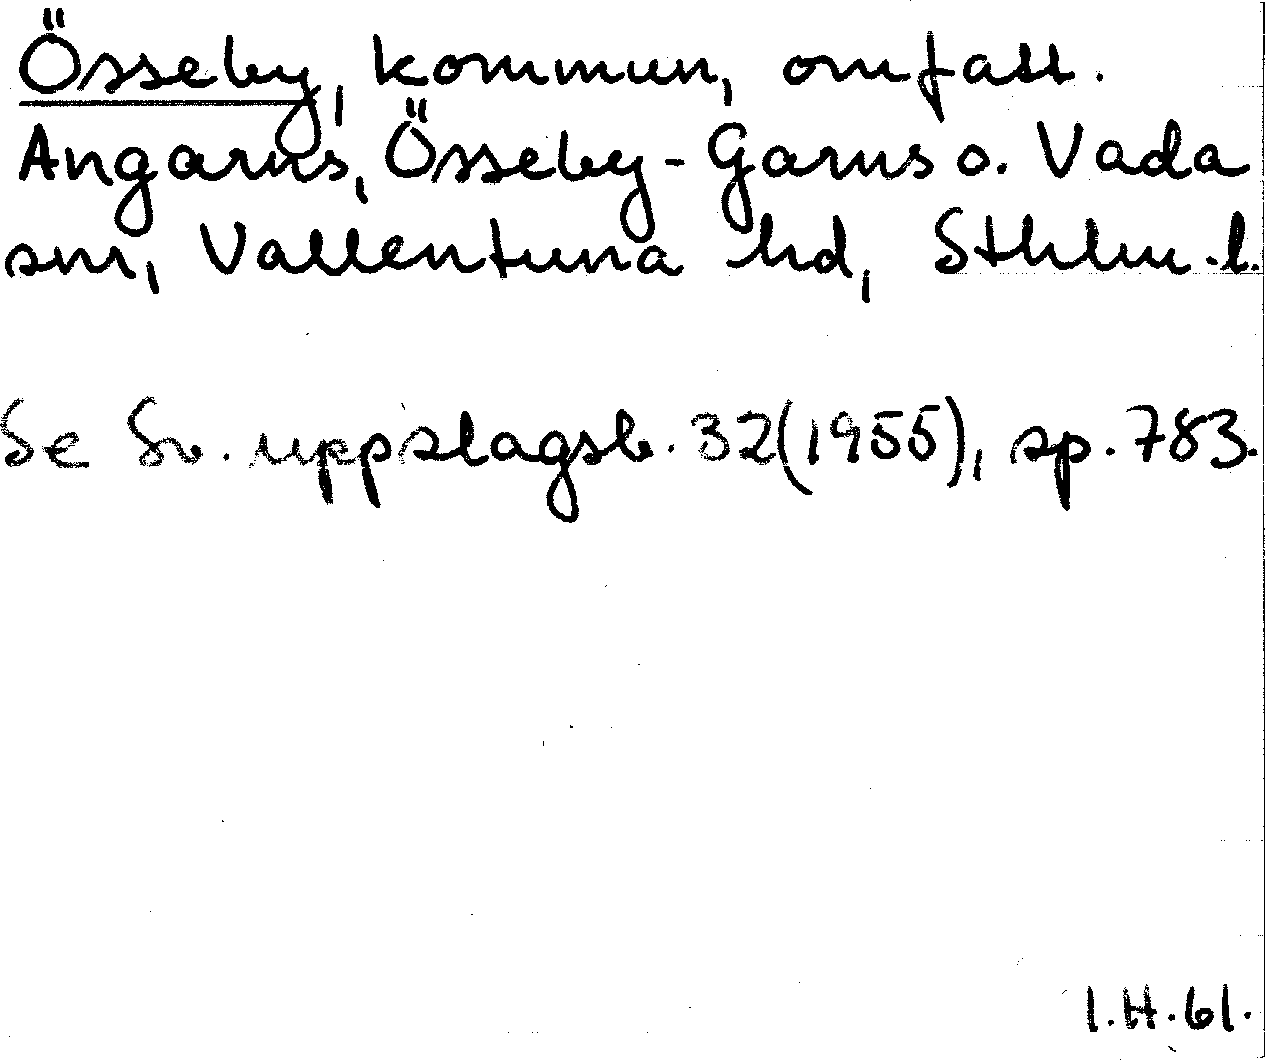 Össeby, kommun, omfatt.
Angarns, Össeby-Garns o. Vada
snr, Vallentuna hd, Sthlm.l.
Se Sv. uppslagsb. 32(1955), sp. 783.
I.H.61.